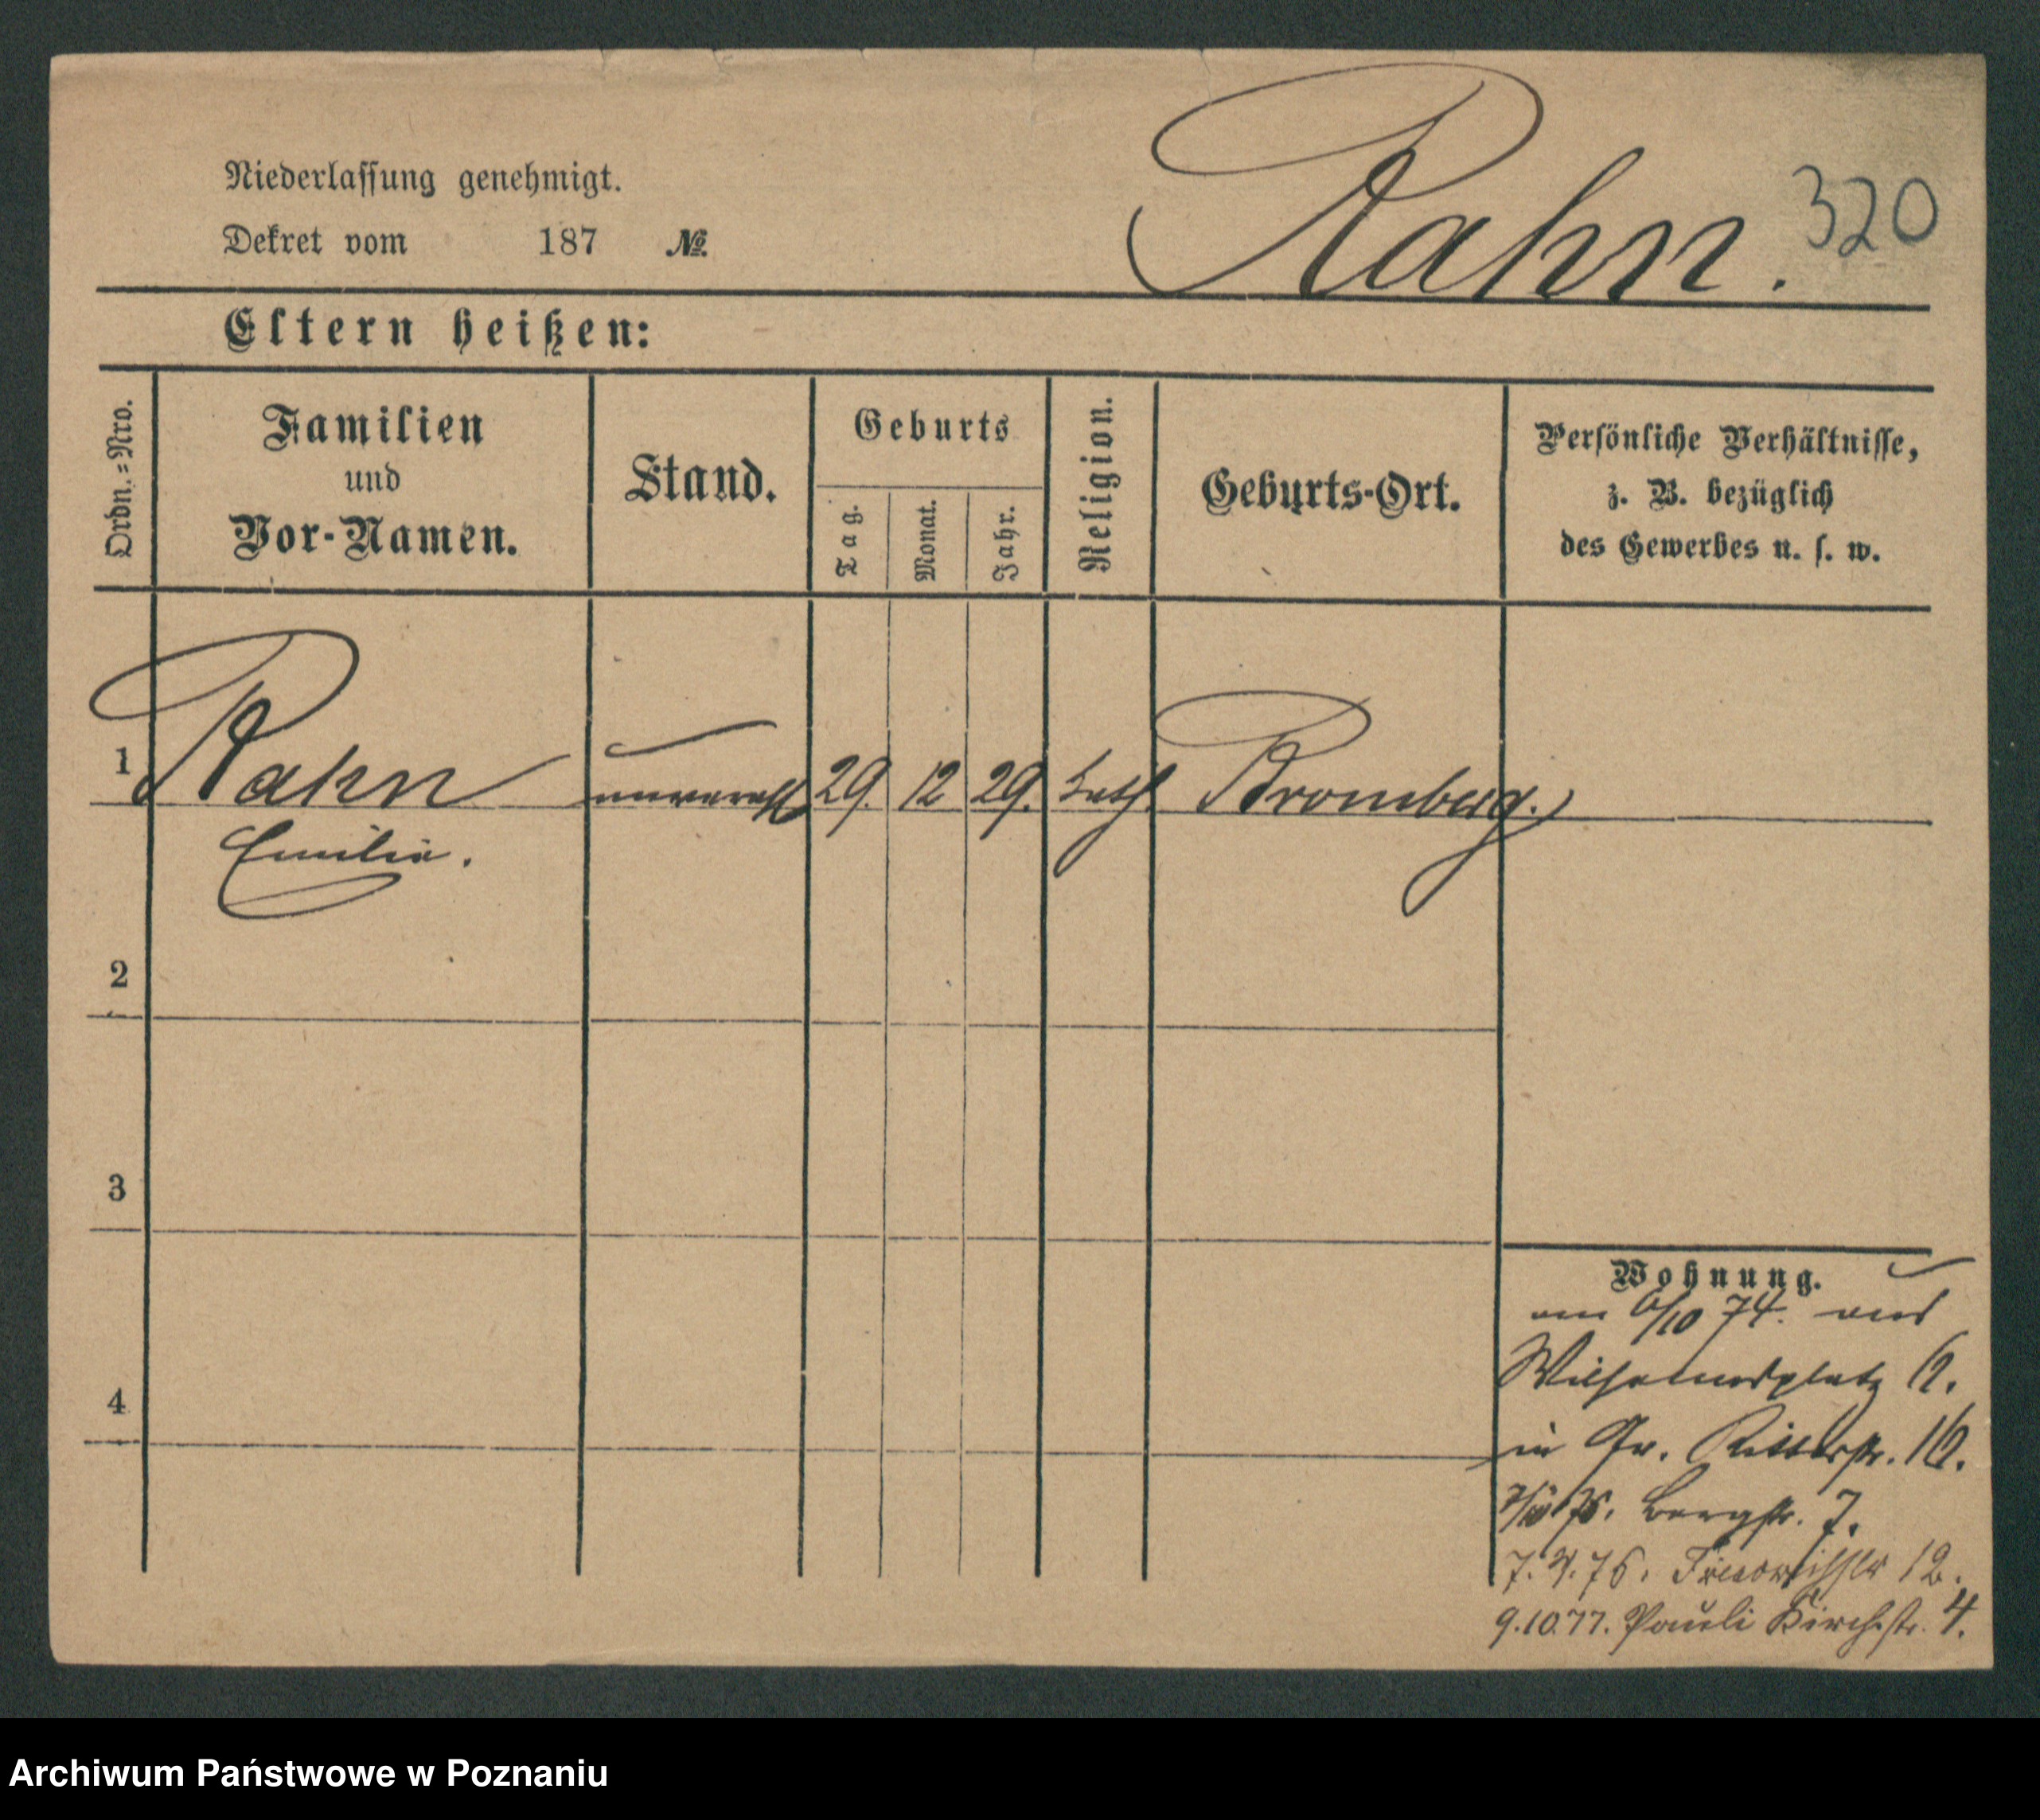 Rahn.
320
Niederlassung genehmigt.
Dekret vom 187 №
Eltern heißen:
Ordn.=Nro.
Familien
und
Vor-Namen.
Stand.
Geburts
Tag.
Monat.
Jahr.
Religion.
Geburts-Ort.
Persönliche Verhältnisse,
z. B. bezüglich
des Gewerbes u. s. w.
1 Rahn unverehl 29. 12 29. kath Bromberg.
Emilie.
2
3
4
Wohnung.
am 6/10 74. aus
Wilhelmsplatz
in Gr. Ritterstr. 16.
75. Bergstr. 7.
7. 4. 76. Friedrichstr 12.
9.10.77. Pauli Kirchstr. 4.
Archiwum Państwowe w Poznaniu